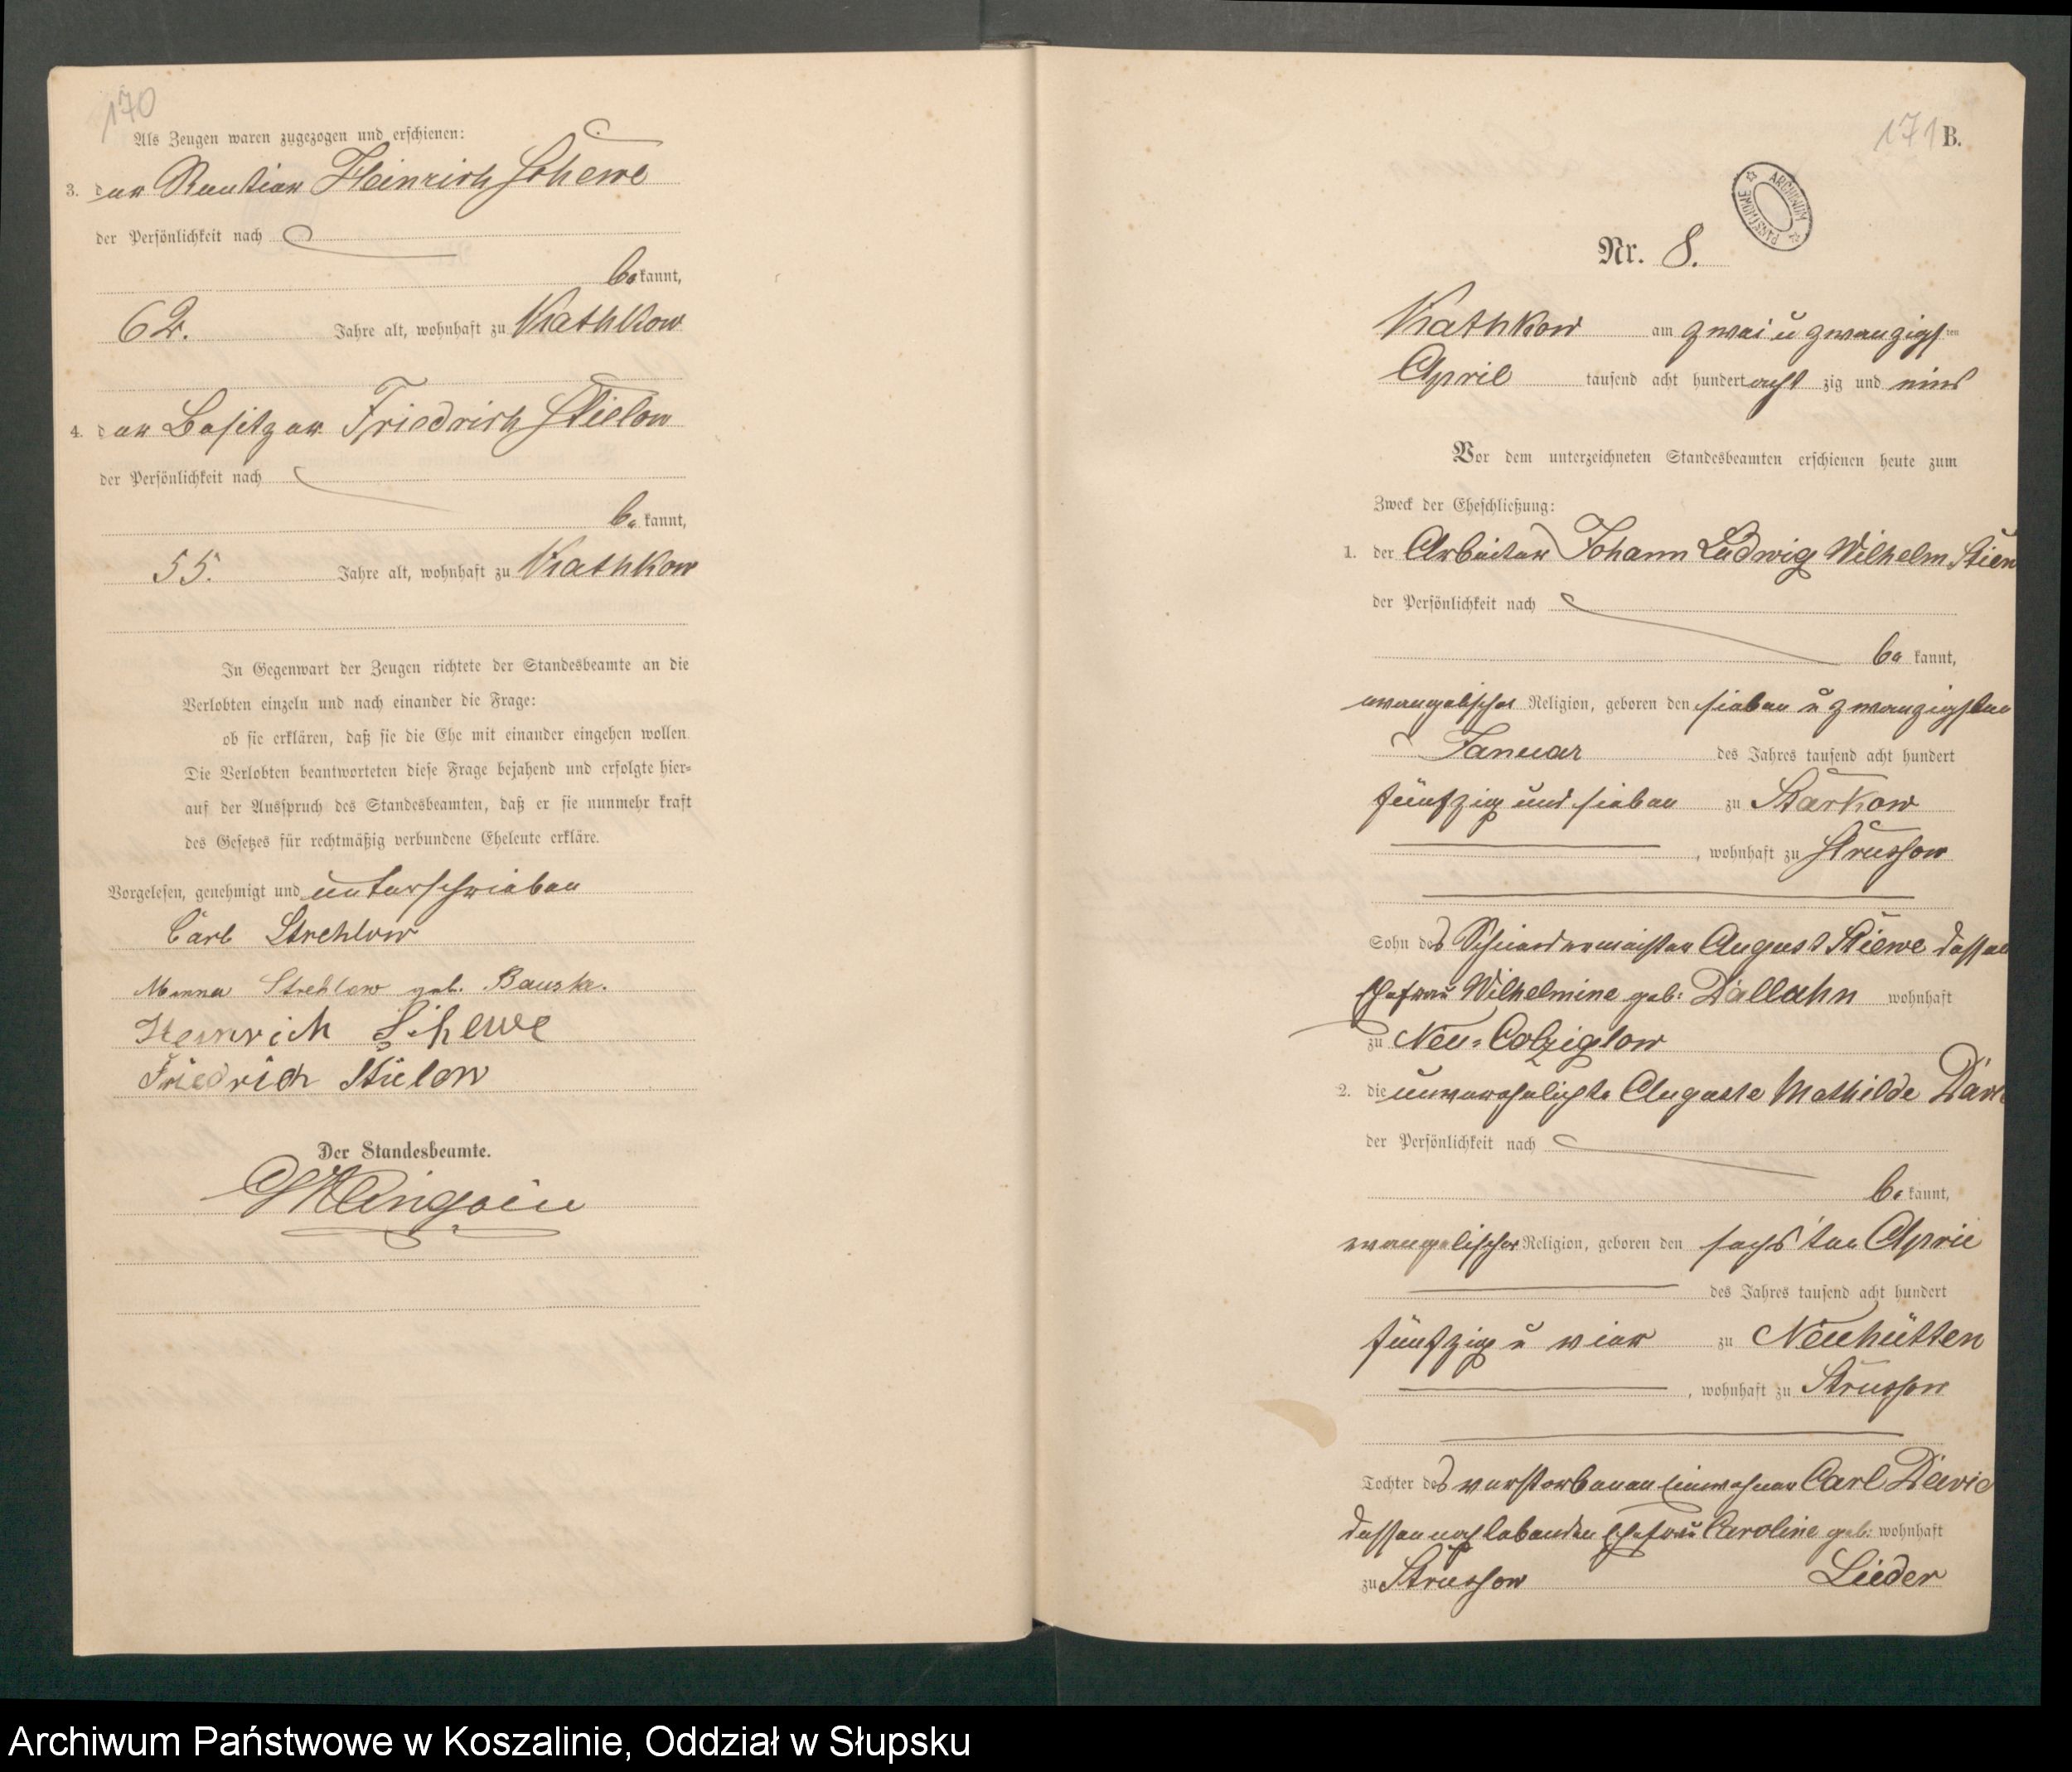 170
Als Zeugen waren zugezogen und erschienen:
3. der Rentier Heinrich Schewe
der Persönlichkeit nach
bekannt,
62. Jahre alt, wohnhaft zu Kathkow
4. der Besitzer Friedrich Stielow
der Persönlichkeit nach
bekannt,
55. Jahre alt, wohnhaft zu Kathkow
In Gegenwart der Zeugen richtete der Standesbeamte an die
Verlobten einzeln und nach einander die Frage:
ob sie erklären, daß sie die Ehe mit einander eingehen wollen.
Die Verlobten beantworteten diese Frage bejahend und erfolgte hier=
auf der Ausspruch des Standesbeamten, daß er sie nunmehr kraft
des Gesetzes für rechtmäßig verbundene Eheleute erkläre.
Vorgelesen, genehmigt und unterschrieben
Carl Strehlow
Minna Strehlow geb. Bauske.
Heinrich Schewe
Friedrich Stielow
Der Standesbeamte.
171 B.
ARCHIWUM PAŃSTWOWE
Nr. 8.
Kathkow am zwei u zwanzigsten
April tausend acht hundert acht zig und eins
Vor dem unterzeichneten Standesbeamten erschienen heute zum
Zweck der Eheschließung:
1. der Arbeiter Johann Ludwig Wilhelm Stiew
der Persönlichkeit nach
bekannt,
evangelischer Religion, geboren den sieben u zwanzigsten
Januar des Jahres tausend acht hundert
fünfzig und sieben zu Starkow
, wohnhaft zu Strussow
Sohn des August Stiewe dessen
Ehefrau Wilhelmine geb: Dallahn wohnhaft
zu Neu=Colziglow
2. die unverehelichte Auguste Mathilde
der Persönlichkeit nach
bekannt,
evangelischer Religion, geboren den sechsten April
des Jahres tausend acht hundert
fünfzig u vier zu Neuhütten
, wohnhaft zu Strussow
Tochter des verstorbenen Einwohner Carl David
dessen noch lebenden Ehefrau Caroline geb: wohnhaft
zu Strussow Lieder
Archiwum Państwowe w Koszalinie, Oddział w Słupsku